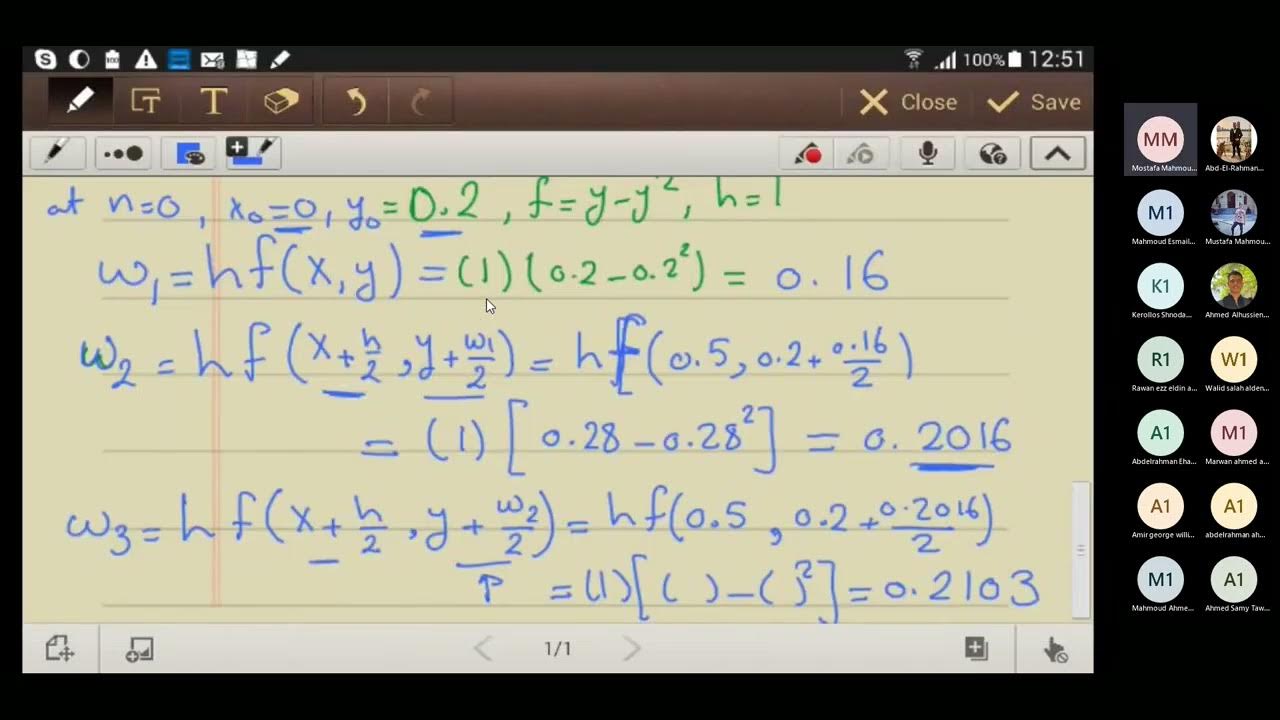 100% 12:51
T T Close Save
at n=0, x₀=0, y₀=0.2, f=y-y², h=1
w₁=hf(x,y)=(1)(0.2-0.2²)=0.16
w₂=hf(x+h/2,y+w₁/2)=hf(0.5,0.2+0.16/2)
=(1)[0.28-0.28²]=0.2016
w₃=hf(x+h/2,y+w₂/2)=hf(0.5,0.2+0.2016/2)
=(1)[( )-( )²]=0.2103
1/1
MM
Mostafa Mahmou... Abd-El-Rahman...
M1
Mahmoud Esmail... Mustafa Mahmou...
K1
Kerollos Shnoda... Ahmed Alhussien...
R1 W1
Rawan ezz eldin a... Walid salah alden...
A1 M1
Abdelrahman Eha... Marwan ahmed a...
A1 A1
Amir george willi... abdelrahman ah...
M1 A1
Mahmoud Ahme... Ahmed Samy Taw...